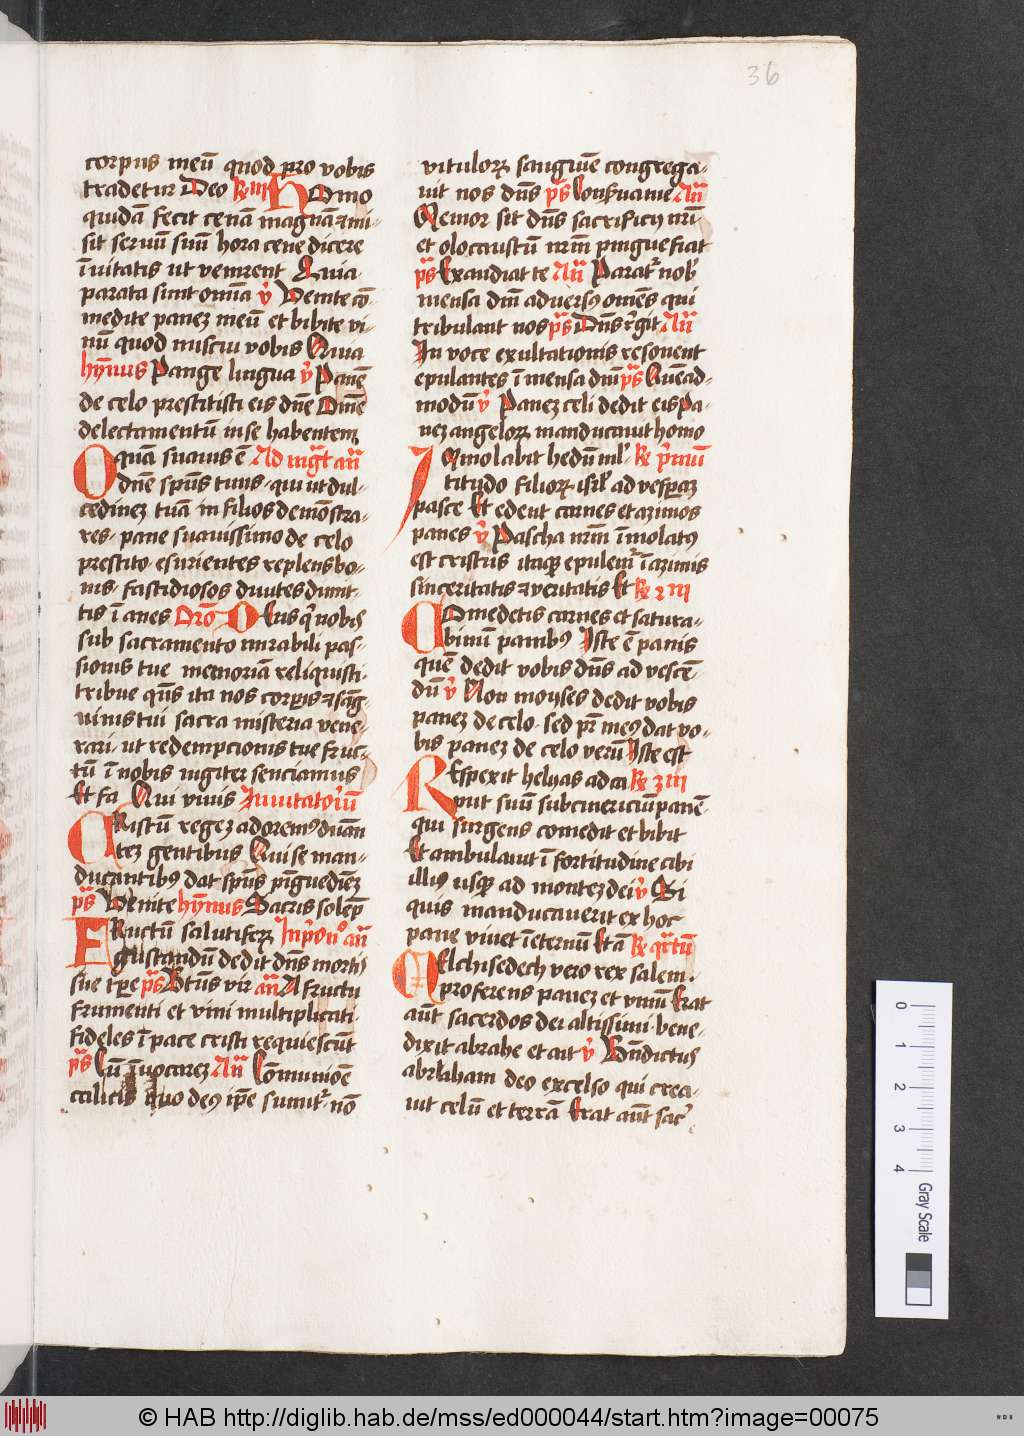 36
corpus meū quod pro vobis
tradetur Deo ℟ iii Homo
quidā fecit cenā magnā ⁊ mi-
sit seruū suū hora cene dicere
īuitatis ut venirent Quia
parata sunt omīa v̓ Venite cō-
medite panez meū et bibite vi-
nū quod miscui vobis Quia
hȳnus Pange lingua v̓ Panē
de celo prestitisti eis dn̄e Omē
delectamentū in se habentem
O quā suauis ē Ad mḡt an̄
dn̄e sp̄us tuus qui ut dul-
cedinez tuā in filios demōstra-
res pane suauissimo de celo
prestito esurientes replens bo-
nis fastidiosos diuites dimit-
tis īanes Orō Deus q̓ nobis
sub sacramento mirabili pas-
sionis tue memoriā reliquisti
tribue qs̄ ita nos corp̄is ⁊ sāg-
uinis tui sacra misteria vene-
rari ut redempcionis tue fruc-
tū ī nobis iugiter senciamus
Et fa Qui viuis Inuitatoriū
Cristū regez adoremꝰ dn̄an
tez gentibus Qui se man-
ducantibꝰ dat sp̄us pīguedinez
p̄s Venite hȳnus Sacris solēp
Fructū salutiferꝝ In p̓ on̊ an̄
gustandū dedit dn̄s mortis
sue tp̄e p̄s Btūs vir an̄ A fructu
frumenti et vini multiplicati
fideles ī pace cristi requiescūt
p̄s Cū īuocarez An̄ Cōmunione
calicis quo deꝰ ip̄e sumit᷑ nō
vitulorꝝ sanguīe congrega-
uit nos dn̄s p̄s Conẜua me An̄
Memor sit dn̄s sacrificij nr̄i
et olocaustū nr̄m pingue fiat
p̄s Exaudiat te An̄ Parat᷑ nob̓
mensa dn̄i aduersꝰ omēs qui
tribulant nos p̄s Dn̄s r̓git An̄
In voce exultationis resonent
epulantes ī mensa dn̄i p̄s Quēad-
modū v̓ Panez celi dedit eis Pa-
nez angelorꝝ manducauit homo
Imolabit hedū ml̓ ℟ p̓mū
titudo filiorꝝ isrl̓ ad vesp̄az
pasce Et edent carnes et azimos
panes v̓ Pascha nr̄m īmolatꝰ
est cristus itaqꝫ epulem᷑ ī azimis
sinceritatis ⁊ veritatis Et ℟ 2 iii
Comedetis carnes et satura-
bimū panibꝰ Iste ē panis
quē dedit vobis dn̄s ad vescē-
dū v̓ Non moyses dedit vobis
panez de celo sed pr̄ meꝰ dat vo-
bis panez de celo verū Iste est
Respexit helyas ad ca ℟ 3 iii
put suū subcinericiū panē
qui surgens comedit et bibit
Et ambulauit ī fortitudine cibi
illiꝰ usqꝫ ad montez dei v̓ Si
quis manducauerit ex hoc
pane viuet ī eternū Et ā ℟ qr̄tū
Melchisedech vero rex salem
proferens panez et vinū Erat
aūt sacerdos dei altissimi bene-
dixit abrahe et ait v̓ Bn̄dictus
abraham deo excelso qui crea-
uit celū et terrā Erat aūt sac̓
0 1 2 3 4 Gray Scale
© HAB http://diglib.hab.de/mss/ed000044/start.htm?image=00075